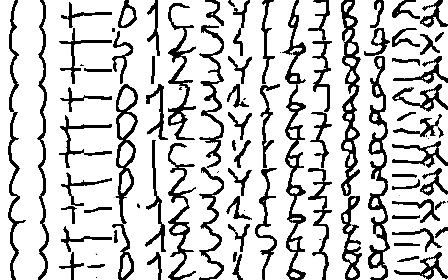 ( ) + - 0 1 2 3 4 5 6 7 8 9 = α
( ) + - 1 2 3 4 5 6 7 8 9 = x
( ) + - 1 2 3 4 5 6 7 8 9 = α
( ) + - 0 1 2 3 4 5 6 7 8 9 = α
( ) + - 0 1 2 3 4 5 6 7 8 9 = x
( ) + - 0 1 2 3 4 5 6 7 8 9 = α
( ) + - 0 1 2 3 4 5 6 7 8 9 = α
( ) + - 1 2 3 4 5 6 7 8 9 = x
( ) + - 1 2 3 4 5 6 7 8 9 = x
( ) + - 0 1 2 3 4 5 6 7 8 9 = α